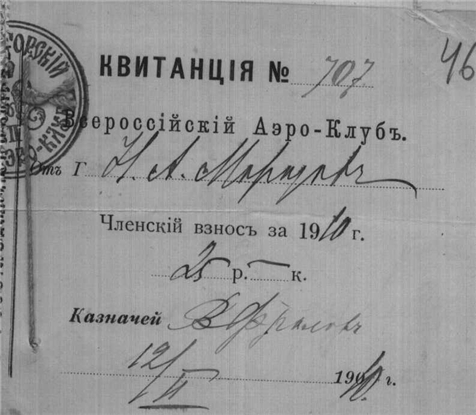 КВИТАНЦІЯ № 707
46
Всероссійскій Аэро-Клубъ.
Отъ Г Н. А. Морозовъ
Членскій взносъ за 1910 г.
25 р. — к.
Казначей В
12/II 1910 г.